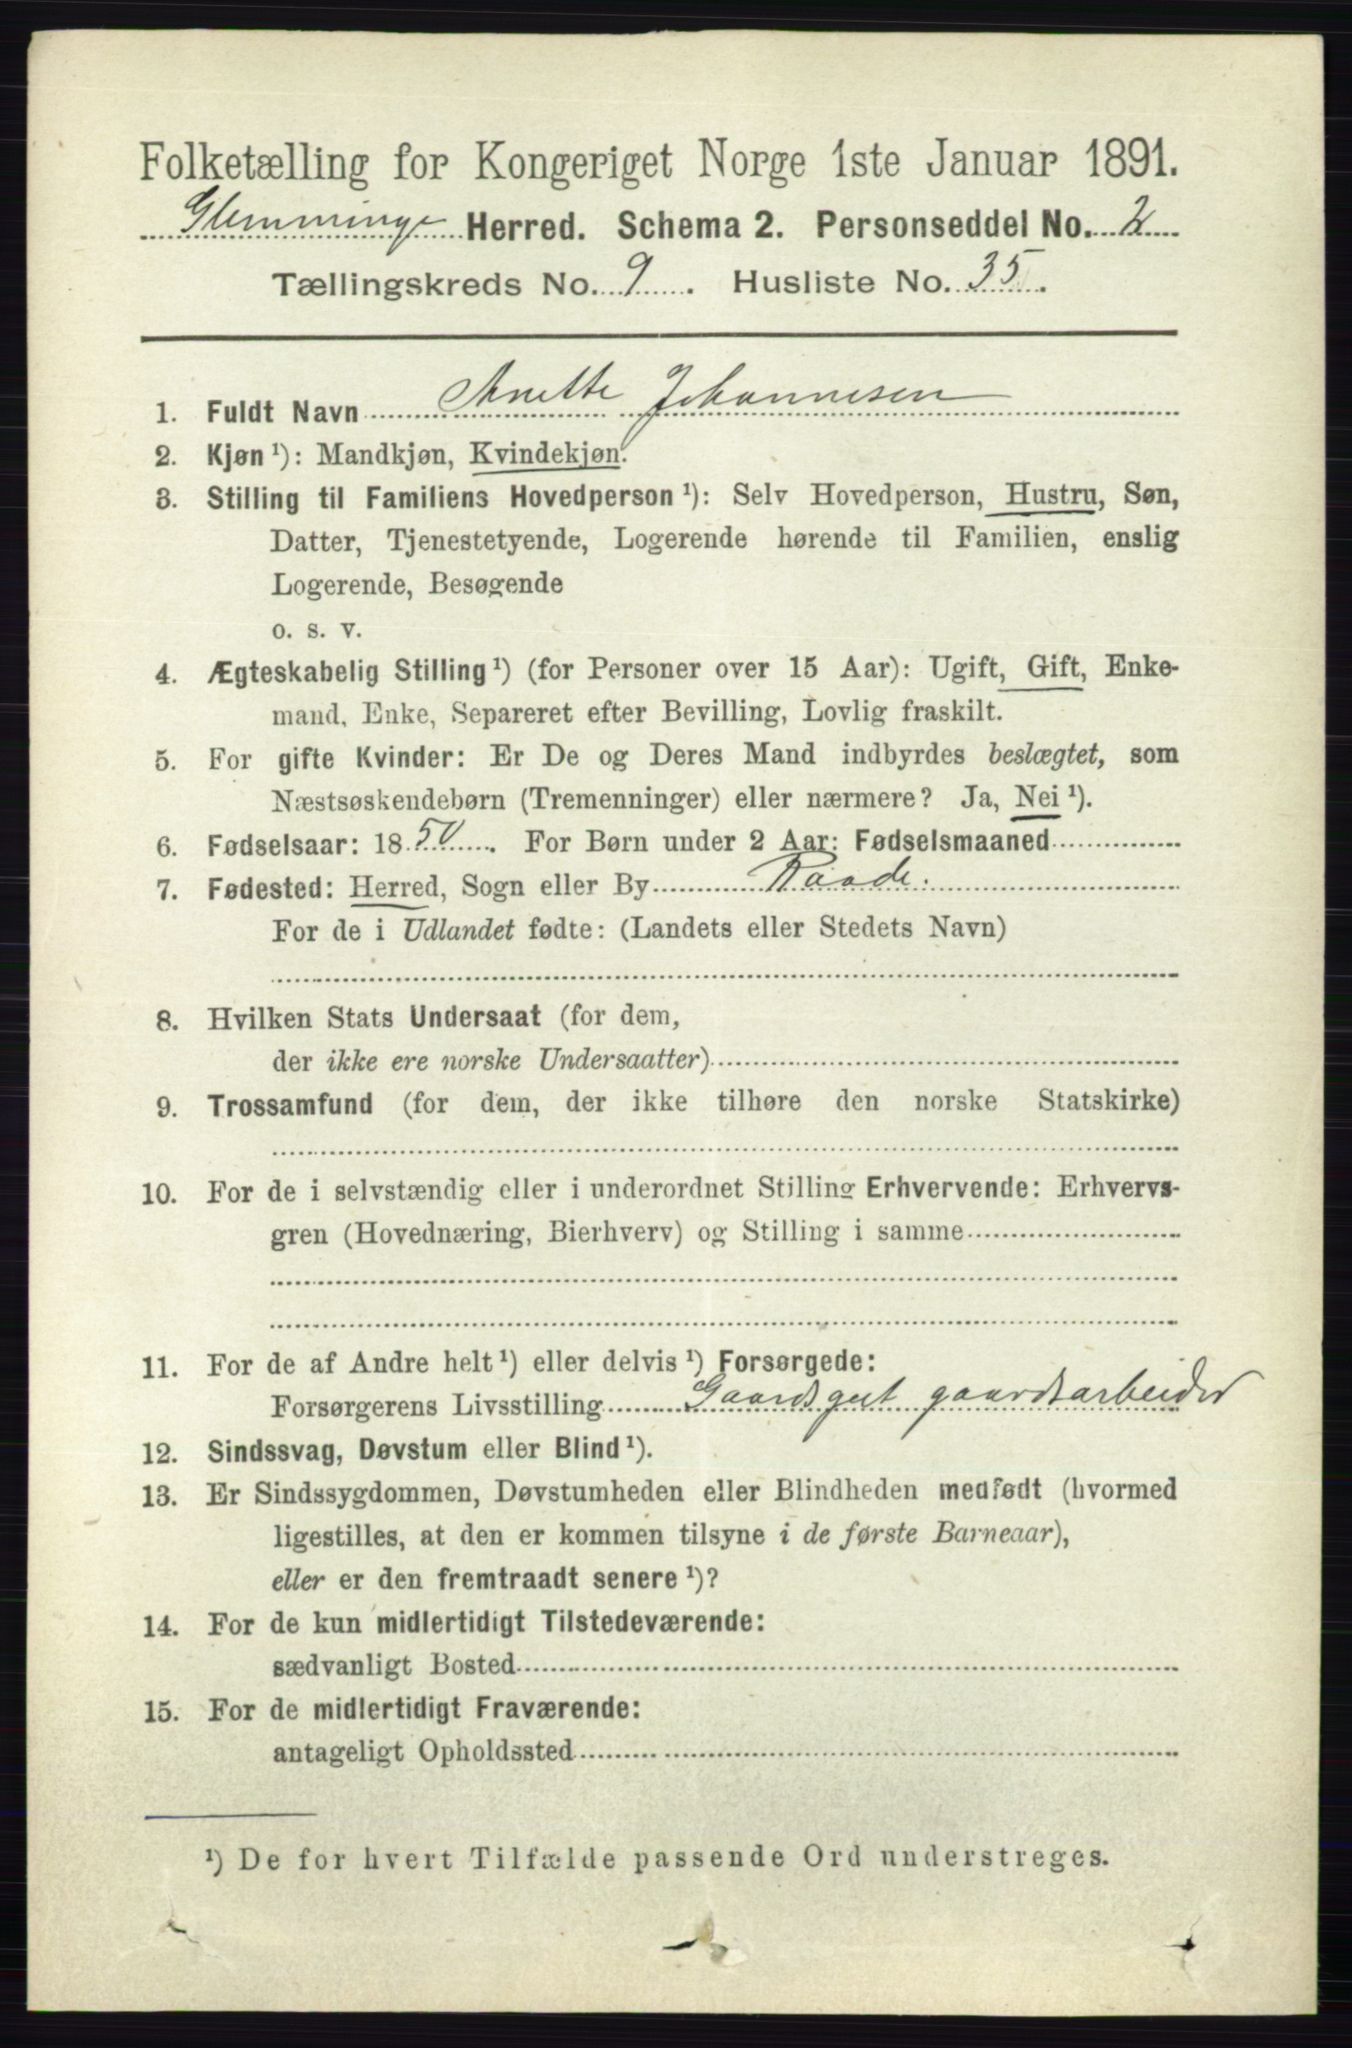 Folketælling for Kongeriget Norge 1ste Januar 1891.
Glemminge Herred. Schema 2. Personseddel No. 2
Tællingskreds No. 9. Husliste No. 35.
1. Fuldt Navn Anette Johannesen
2. Kjøn ¹): Mandkjøn, Kvindekjøn.
3. Stilling til Familiens Hovedperson ¹): Selv Hovedperson, Hustru, Søn,
Datter, Tjenestetyende, Logerende hørende til Familien, enslig
Logerende, Besøgende
o. s. v.
4. Ægteskabelig Stilling ¹) (for Personer over 15 Aar): Ugift, Gift, Enke-
mand, Enke, Separeret efter Bevilling, Lovlig fraskilt.
5. For gifte Kvinder: Er De og Deres Mand indbyrdes beslægtet, som
Næstsøskendebørn (Tremenninger) eller nærmere? Ja, Nei ¹).
6. Fødselsaar: 1850. For Børn under 2 Aar: Fødselsmaaned
7. Fødested: Herred, Sogn eller By Raade.
For de i Udlandet fødte: (Landets eller Stedets Navn)
8. Hvilken Stats Undersaat (for dem,
der ikke ere norske Undersaatter)
9. Trossamfund (for dem, der ikke tilhøre den norske Statskirke)
10. For de i selvstændig eller i underordnet Stilling Erhvervende: Erhvervs-
gren (Hovednæring, Bierhverv) og Stilling i samme
11. For de af Andre helt ¹) eller delvis ¹) Forsørgede:
Forsørgerens Livsstilling Gaards gaardsarbeider
12. Sindssvag, Døvstum eller Blind ¹).
13. Er Sindssygdommen, Døvstumheden eller Blindheden medfødt (hvormed
ligestilles, at den er kommen tilsyne i de første Barneaar),
eller er den fremtraadt senere ¹)?
14. For de kun midlertidigt Tilstedeværende:
sædvanligt Bosted
15. For de midlertidigt Fraværende:
antageligt Opholdssted
¹) De for hvert Tilfælde passende Ord understreges.